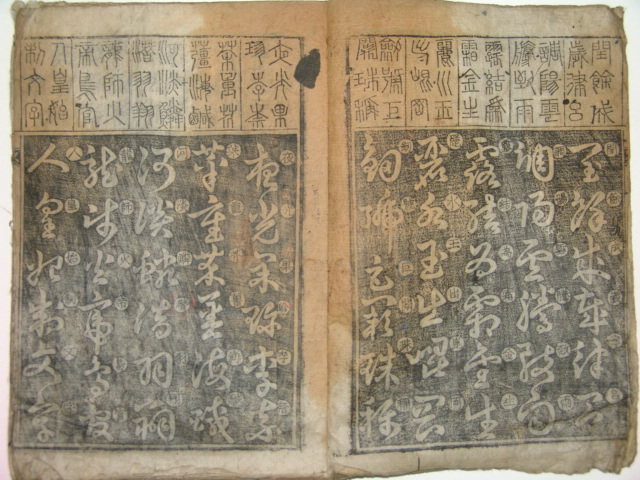 閏餘成
歲律呂
調陽雲
騰致雨
露結爲
霜金生
麗水玉
出崑岡
劍號巨
闕珠稱
閏餘成歲律呂
調陽雲騰致雨
露結爲霜金生
麗水玉出崑岡
劍號巨闕珠稱
夜光果
珍李柰
菜重芥
薑海鹹
河淡鱗
潛羽翔
龍師火
帝鳥官
人皇始
制文字
夜光果珍李柰
菜重芥薑海鹹
河淡鱗潛羽翔
龍師火帝鳥官
人皇始制文字